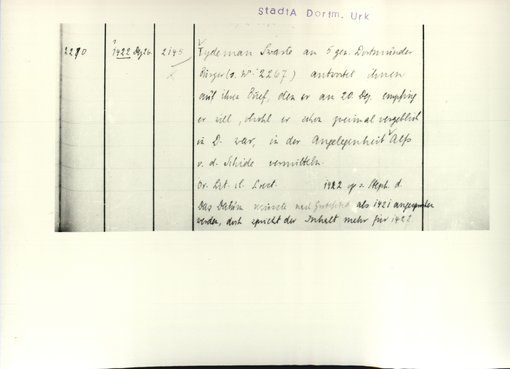 StadtA Dortm. Urk
2270 1422 Dez 26. 2145
Tydeman Swarte an 5 gen. Dortmunder
Bürger (s. Nr. 2267) antwortet ihnen
auf ihre Brief, den er an 20. Dez. empfing
er will, obwohl er schon zweimal vergeblich
in D. war, in der Angelegenheit Alfs
v. d. Schide vermitteln.
Or. 1422 Steph. d.
Das Datum als 1421 angesprochen
werden, doch spricht der Inhalt mehr für 1422